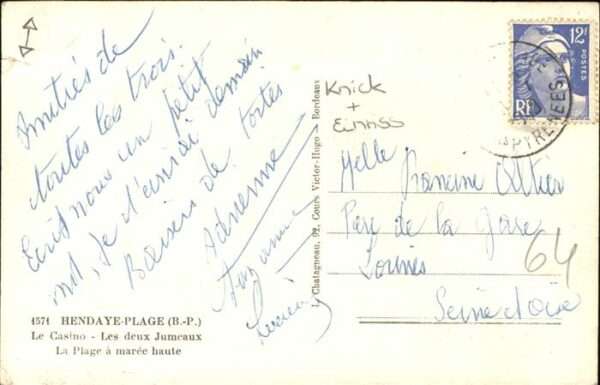 Amitiés de
toutes les trois.
Ecris nous un petit
mot, je t'écrirai demain
Baisers de toutes
Adrienne
Suzanne
Lucien
1571 HENDAYE-PLAGE (B.-P.)
Le Casino - Les deux Jumeaux
La Plage à marée haute
L. Chatagneau, 92, Cours Victor-Hugo - Bordeaux
Knick
+
12F
POSTES
RF
PYRENEES
Melle Francine
Parc de la Gare
Seine et Oise
64